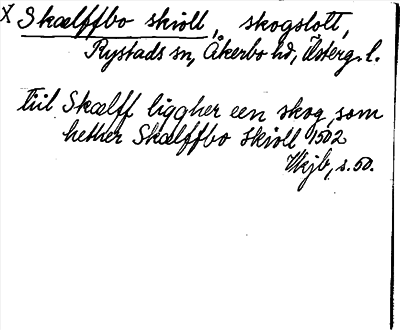 X Skælffbo skioll, skogslott,
Rystads sn, Åkerbo hd, Österg. l.
till Skælff liggher een skog, som
hether Skælffbo skioll 1502
Vkjb, s. 50.